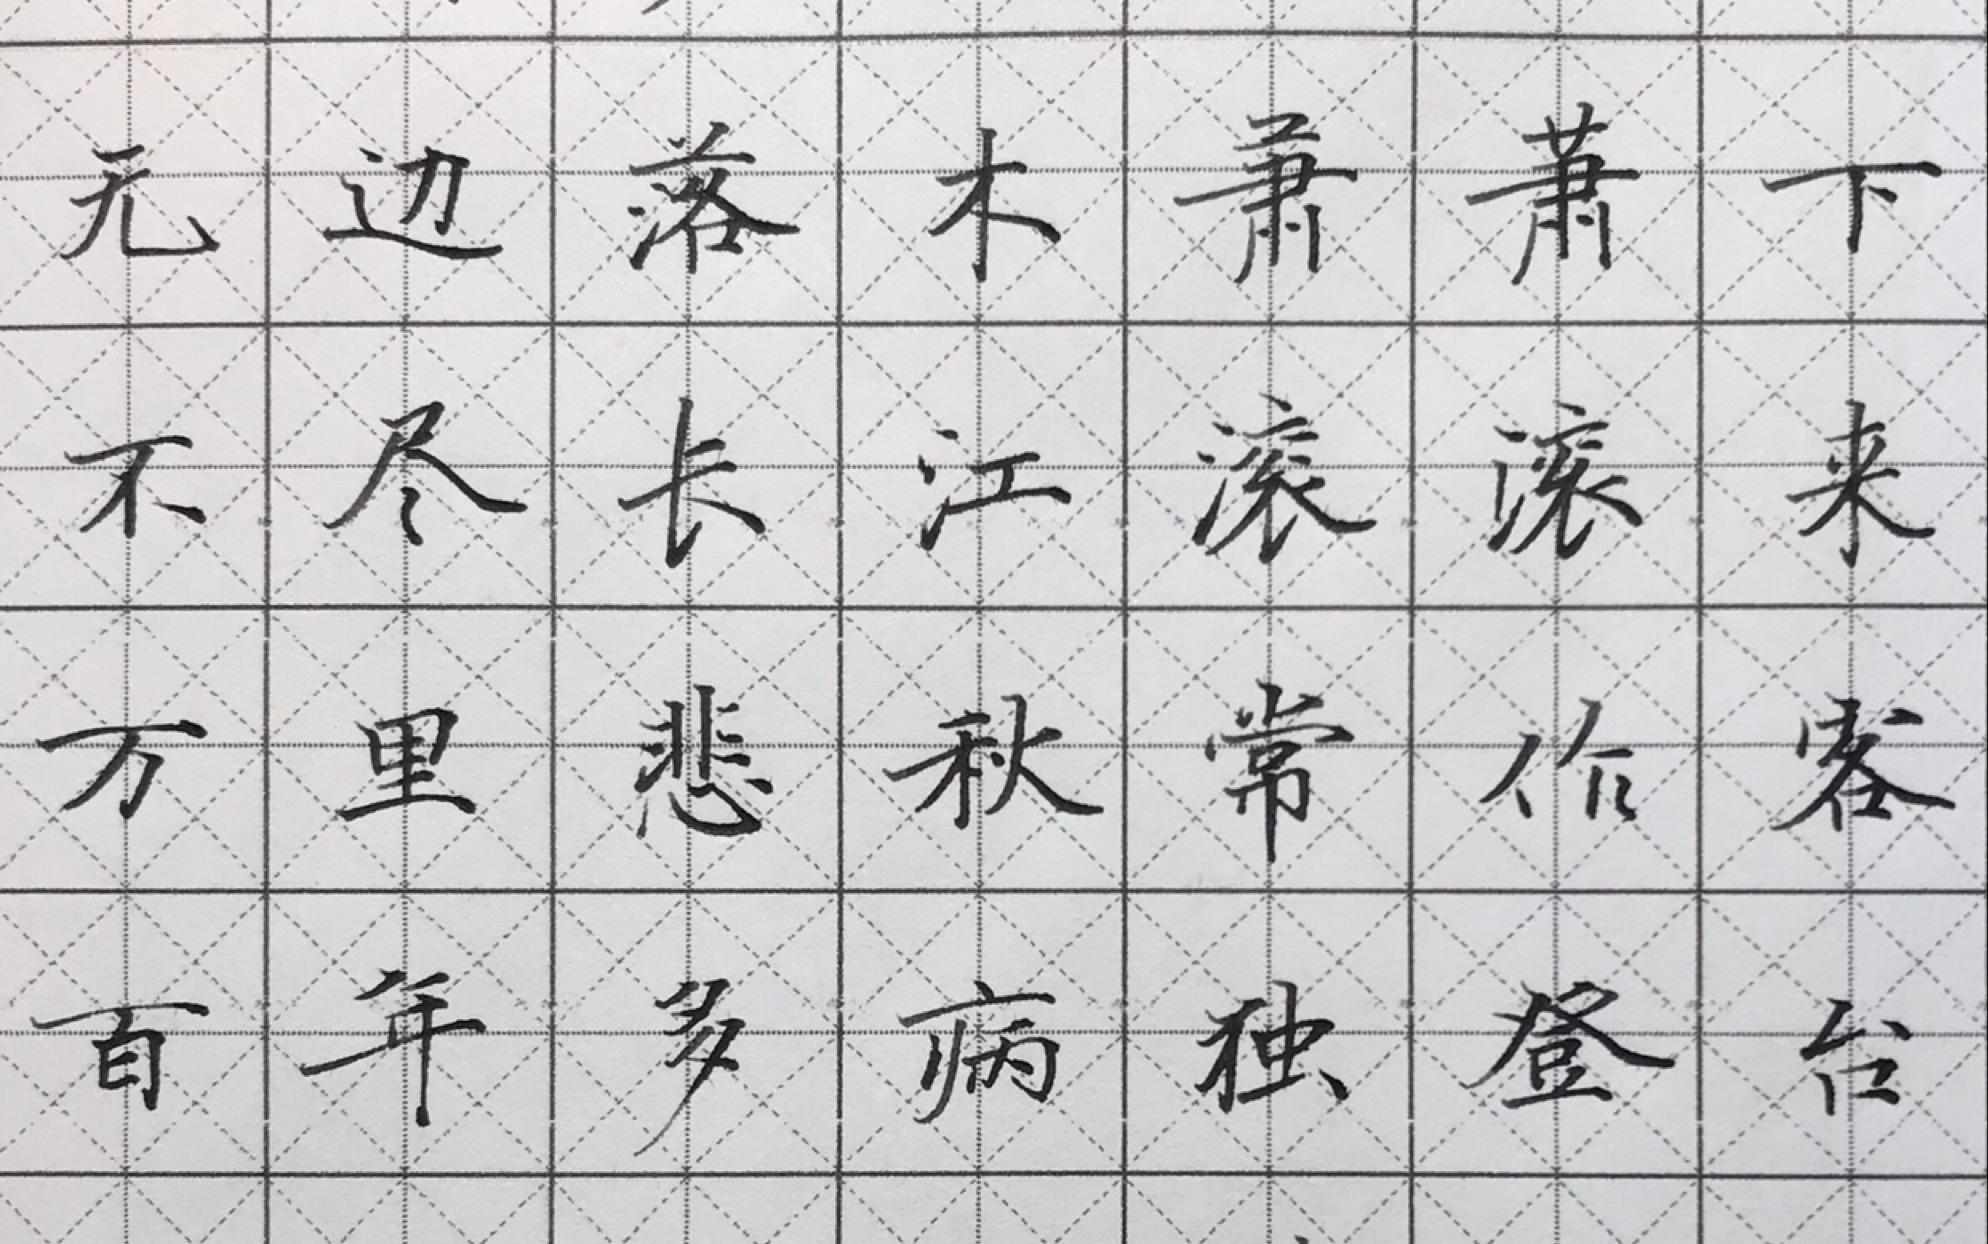 无边落木萧萧下
不尽长江滚滚来
万里悲秋常作客
百年多病独登台